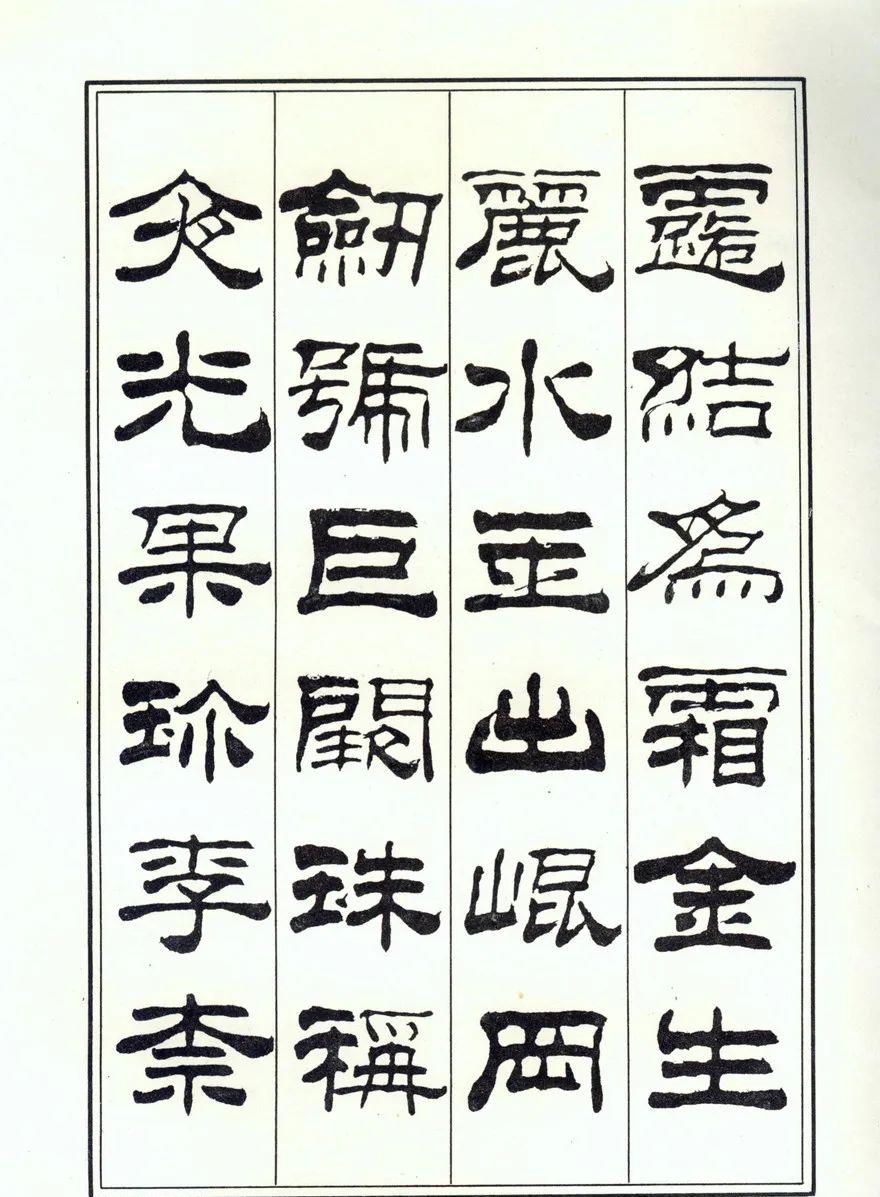 露結為霜金生
麗水玉出崐岡
劒號巨闕珠稱
夜光果珎李柰